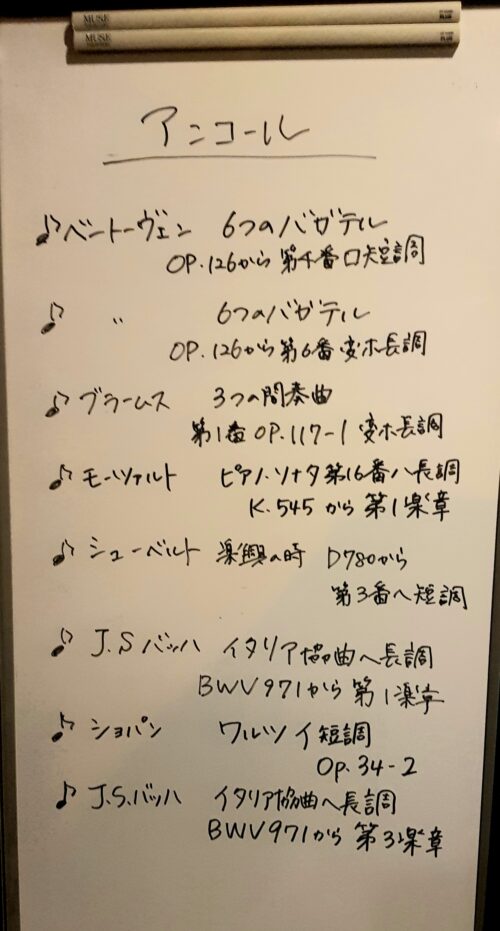 MUSE
MUSE
アンコール
♪ベートーヴェン 6つのバガテル
OP.126から 第4番ロ短調
♪ 〃 6つのバガテル
OP.126から第6番 変ホ長調
♪ブラームス 3つの間奏曲
第1番 OP.117-1 変ホ長調
♪モーツァルト ピアノ・ソナタ第16番ハ長調
K.545 から 第1楽章
♪シューベルト 楽興の時 D780から
第3番ヘ短調
♪J.S バッハ イタリア協曲ヘ長調
BWV971から 第1楽章
♪ショパン ワルツ イ短調
Op.34-2
♪J.S.バッハ イタリア協曲ヘ長調
BWV971から 第3楽章